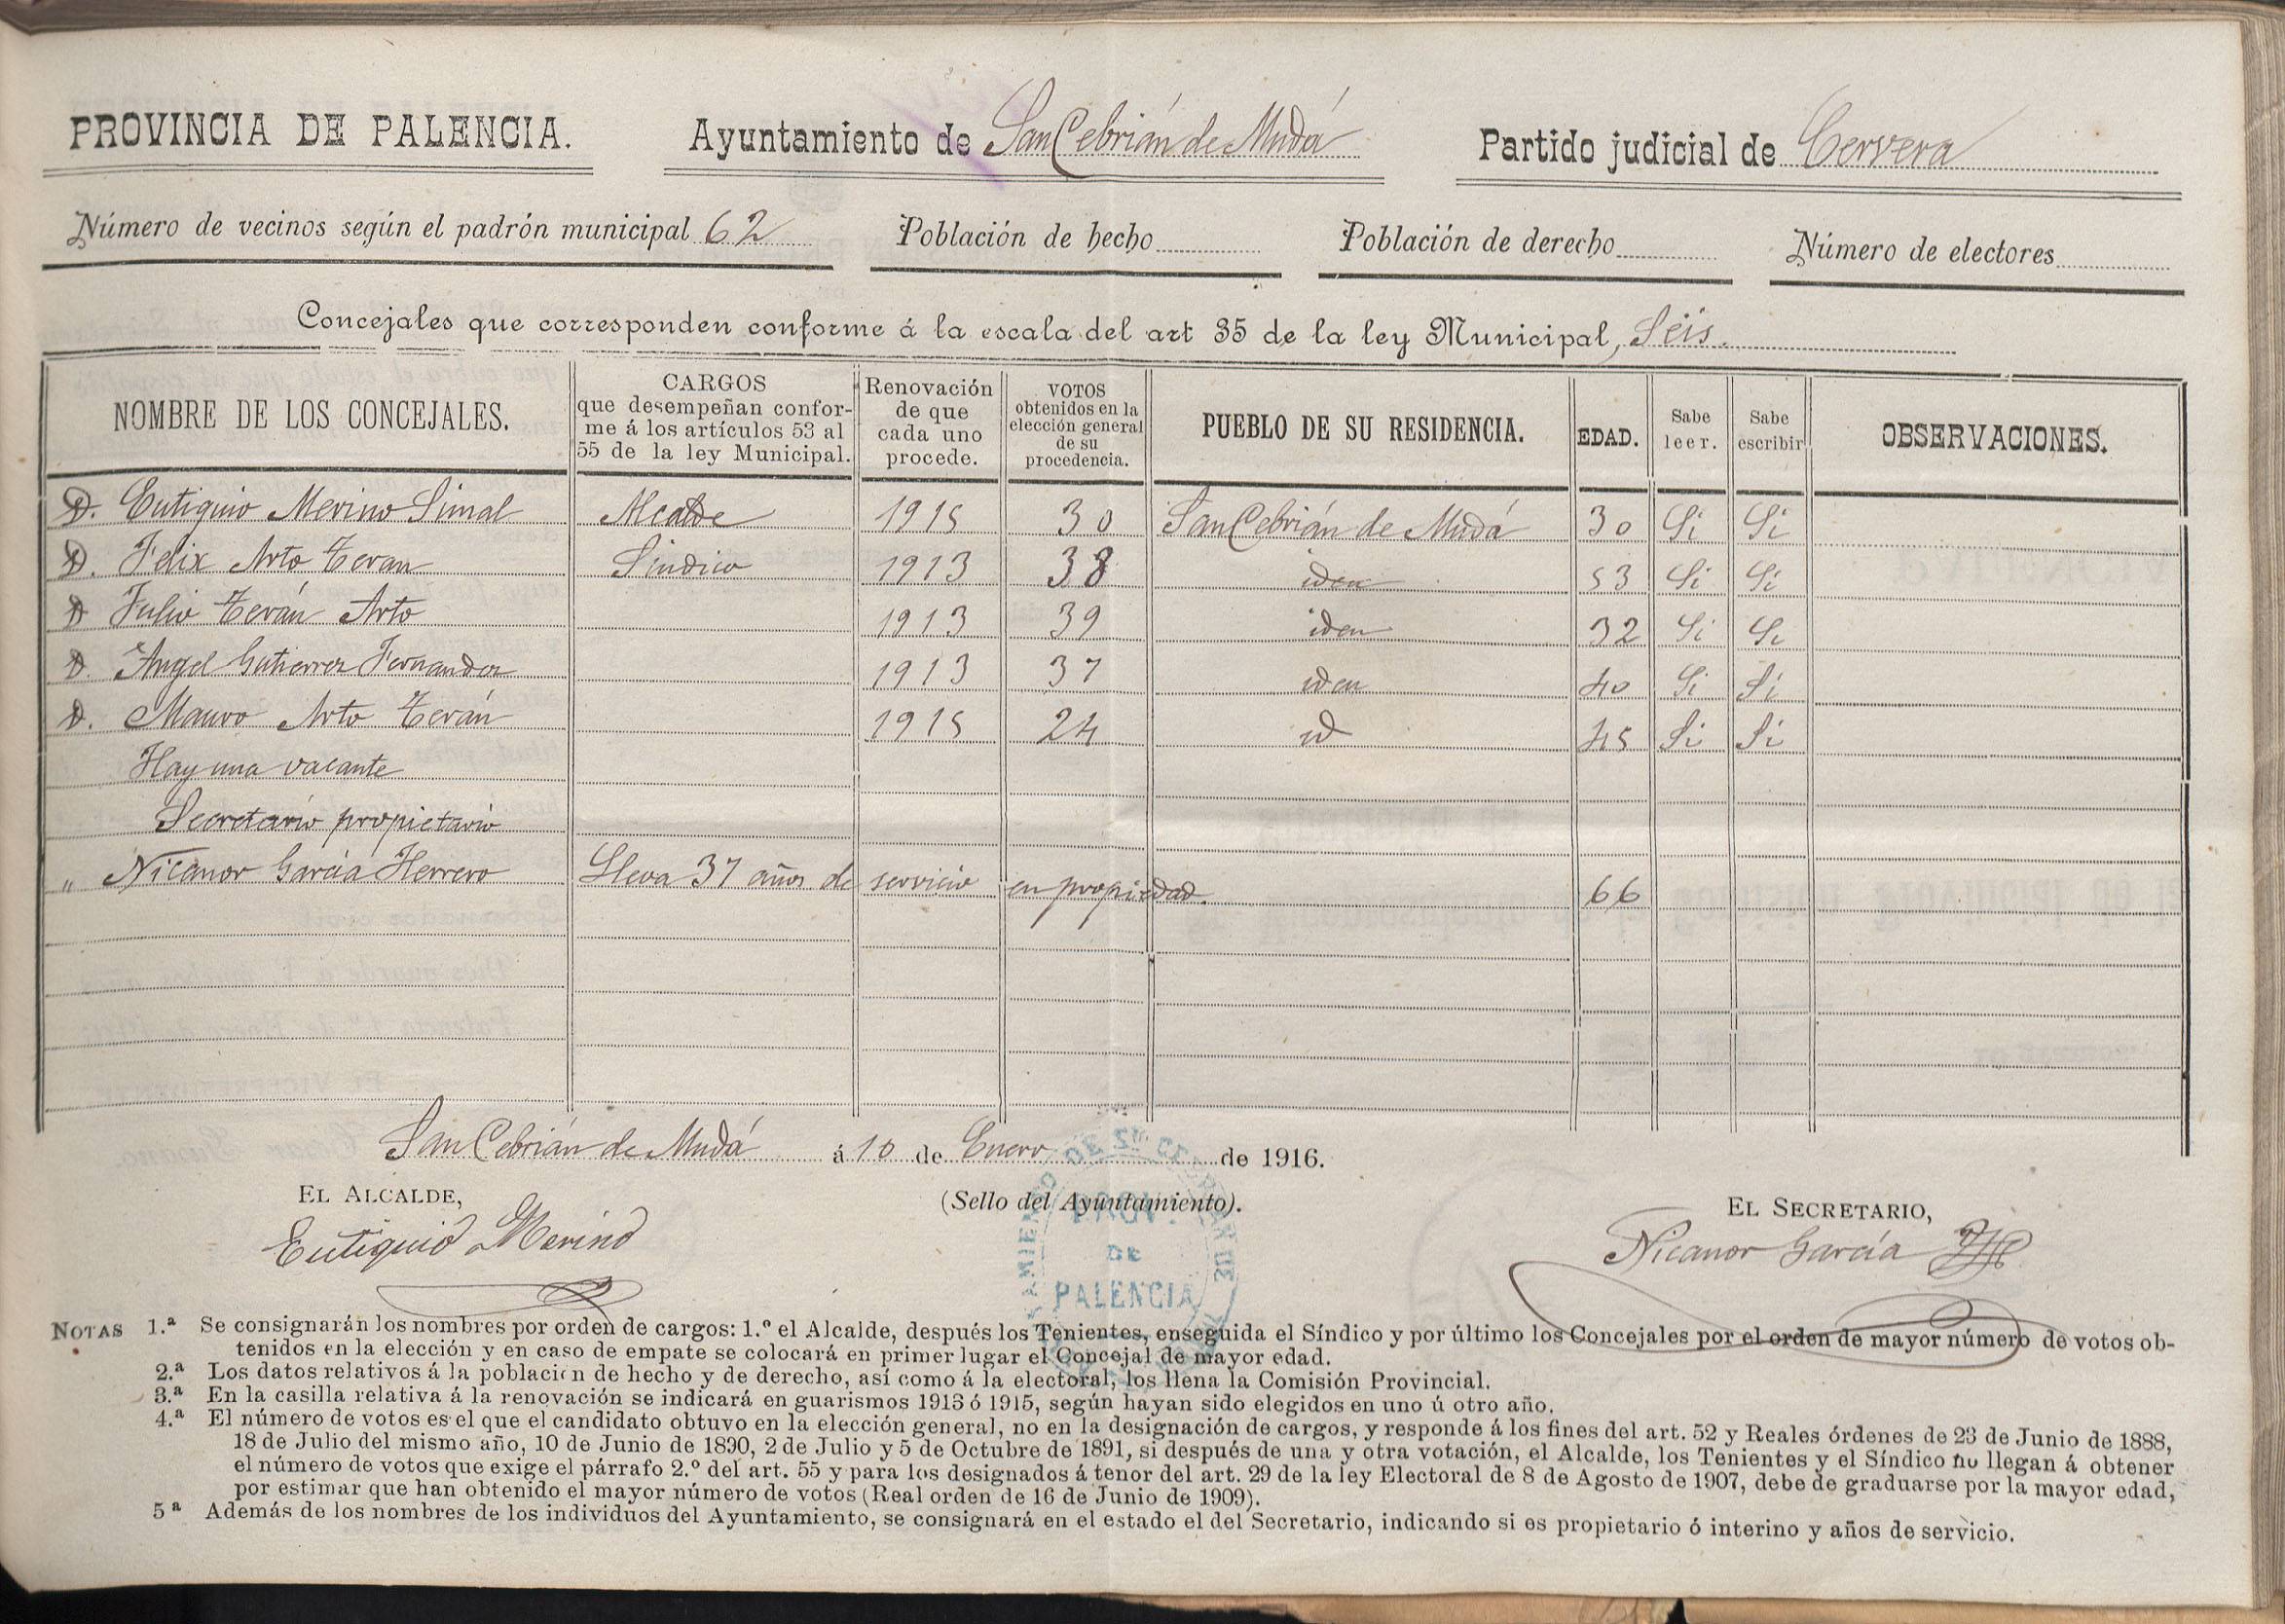 PROVINCIA DE PALENCIA. Ayuntamiento de San Cebrián de Mudá Partido judicial de Cervera
Número de vecinos según el padrón municipal 62 Población de hecho Población de derecho Número de electores
Concejales que corresponden conforme á la escala del art 35 de la ley Municipal, Séis.
NOMBRE DE LOS CONCEJALES. CARGOS que desempeñan conforme á los artículos 53 al 55 de la ley Municipal. Renovación de que cada uno procede. VOTOS obtenidos en la elección general de su procedencia. PUEBLO DE SU RESIDENCIA. EDAD. Sabe leer. Sabe escribir OBSERVACIONES.
D. Eutiquio Merino Simal Alcalde 1915 30 San Cebrián de Mudá 30 Si Si
D. Felix Arto Teran Sindico 1913 38 iden 53 Si Si
D Julio Terán Arto 1913 39 iden 32 Si Si
D. Angel Gutierrez Fernandez 1913 37 iden 40 Si Si
D. Mauro Arto Terán 1915 24 id 45 Si Si
Hay una vacante
Secretario propietario
" Nicanor García Herrero Lleva 37 años de servicio en propiedad. 66
San Cebrián de Mudá á 10 de Enero de 1916.
EL ALCALDE, (Sello del Ayuntamiento). EL SECRETARIO,
Eutiquio Merino Nicanor García
PROV.
DE
PALENCIA
NOTAS 1.ª Se consignarán los nombres por orden de cargos: 1.º el Alcalde, después los Tenientes, enseguida el Síndico y por último los Concejales por el orden de mayor número de votos ob-
tenidos en la elección y en caso de empate se colocará en primer lugar el Concejal de mayor edad.
2.ª Los datos relativos á la población de hecho y de derecho, así como á la electoral, los llena la Comisión Provincial.
3.ª En la casilla relativa á la renovación se indicará en guarismos 1913 ó 1915, según hayan sido elegidos en uno ú otro año.
4.ª El número de votos es el que el candidato obtuvo en la elección general, no en la designación de cargos, y responde á los fines del art. 52 y Reales órdenes de 23 de Junio de 1888,
18 de Julio del mismo año, 10 de Junio de 1890, 2 de Julio y 5 de Octubre de 1891, si después de una y otra votación, el Alcalde, los Tenientes y el Síndico no llegan á obtener
el número de votos que exige el párrafo 2.º del art. 55 y para los designados á tenor del art. 29 de la ley Electoral de 8 de Agosto de 1907, debe de graduarse por la mayor edad,
por estimar que han obtenido el mayor número de votos (Real orden de 16 de Junio de 1909).
5ª Además de los nombres de los individuos del Ayuntamiento, se consignará en el estado el del Secretario, indicando si es propietario ó interino y años de servicio.